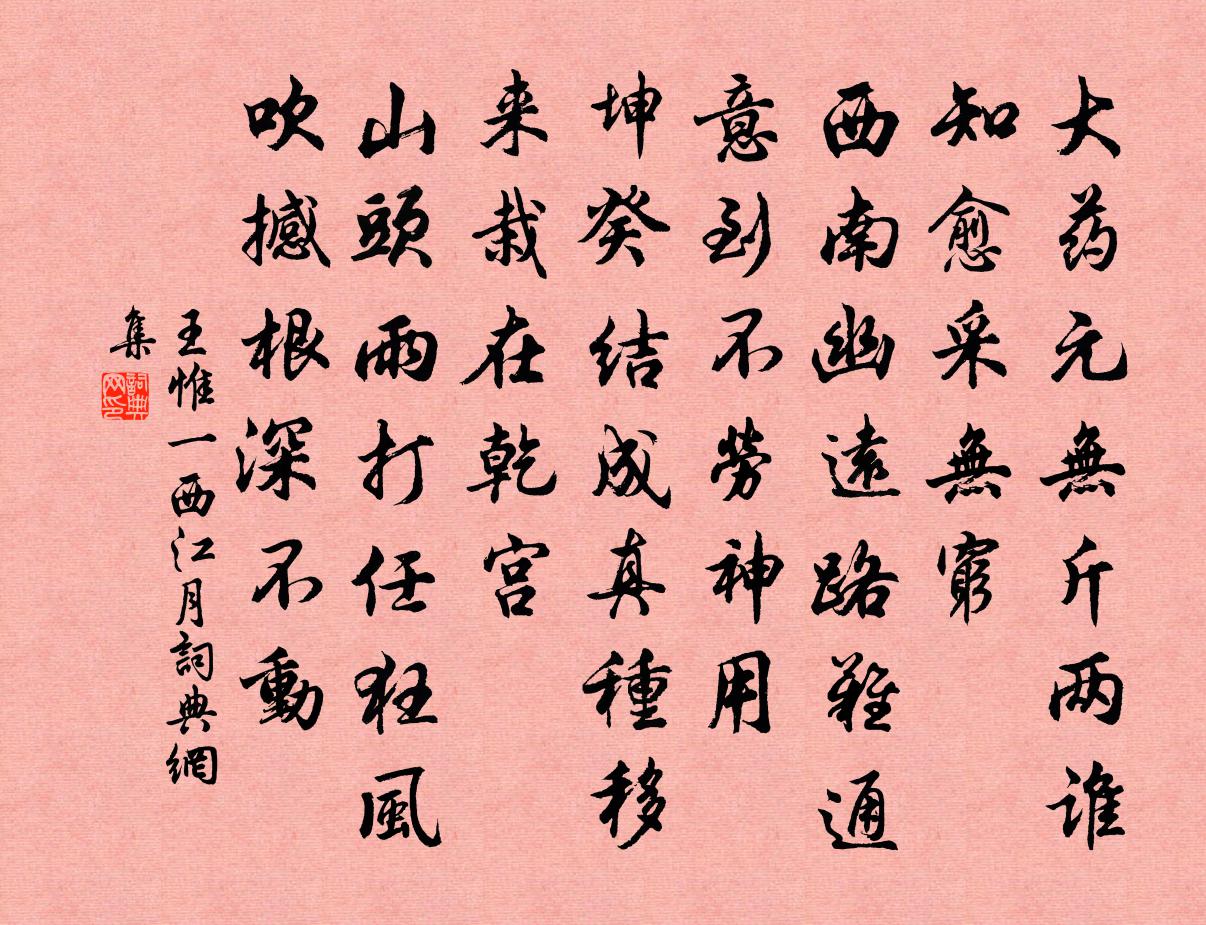 大药元無斤两谁
知愈采無窮
西南幽遠路難通
意到不勞神用
坤癸结成真種移
来栽在乾宫
山頭雨打任狂風
吹撼根深不動
王惟一西江月詞典網
集
詞典网印